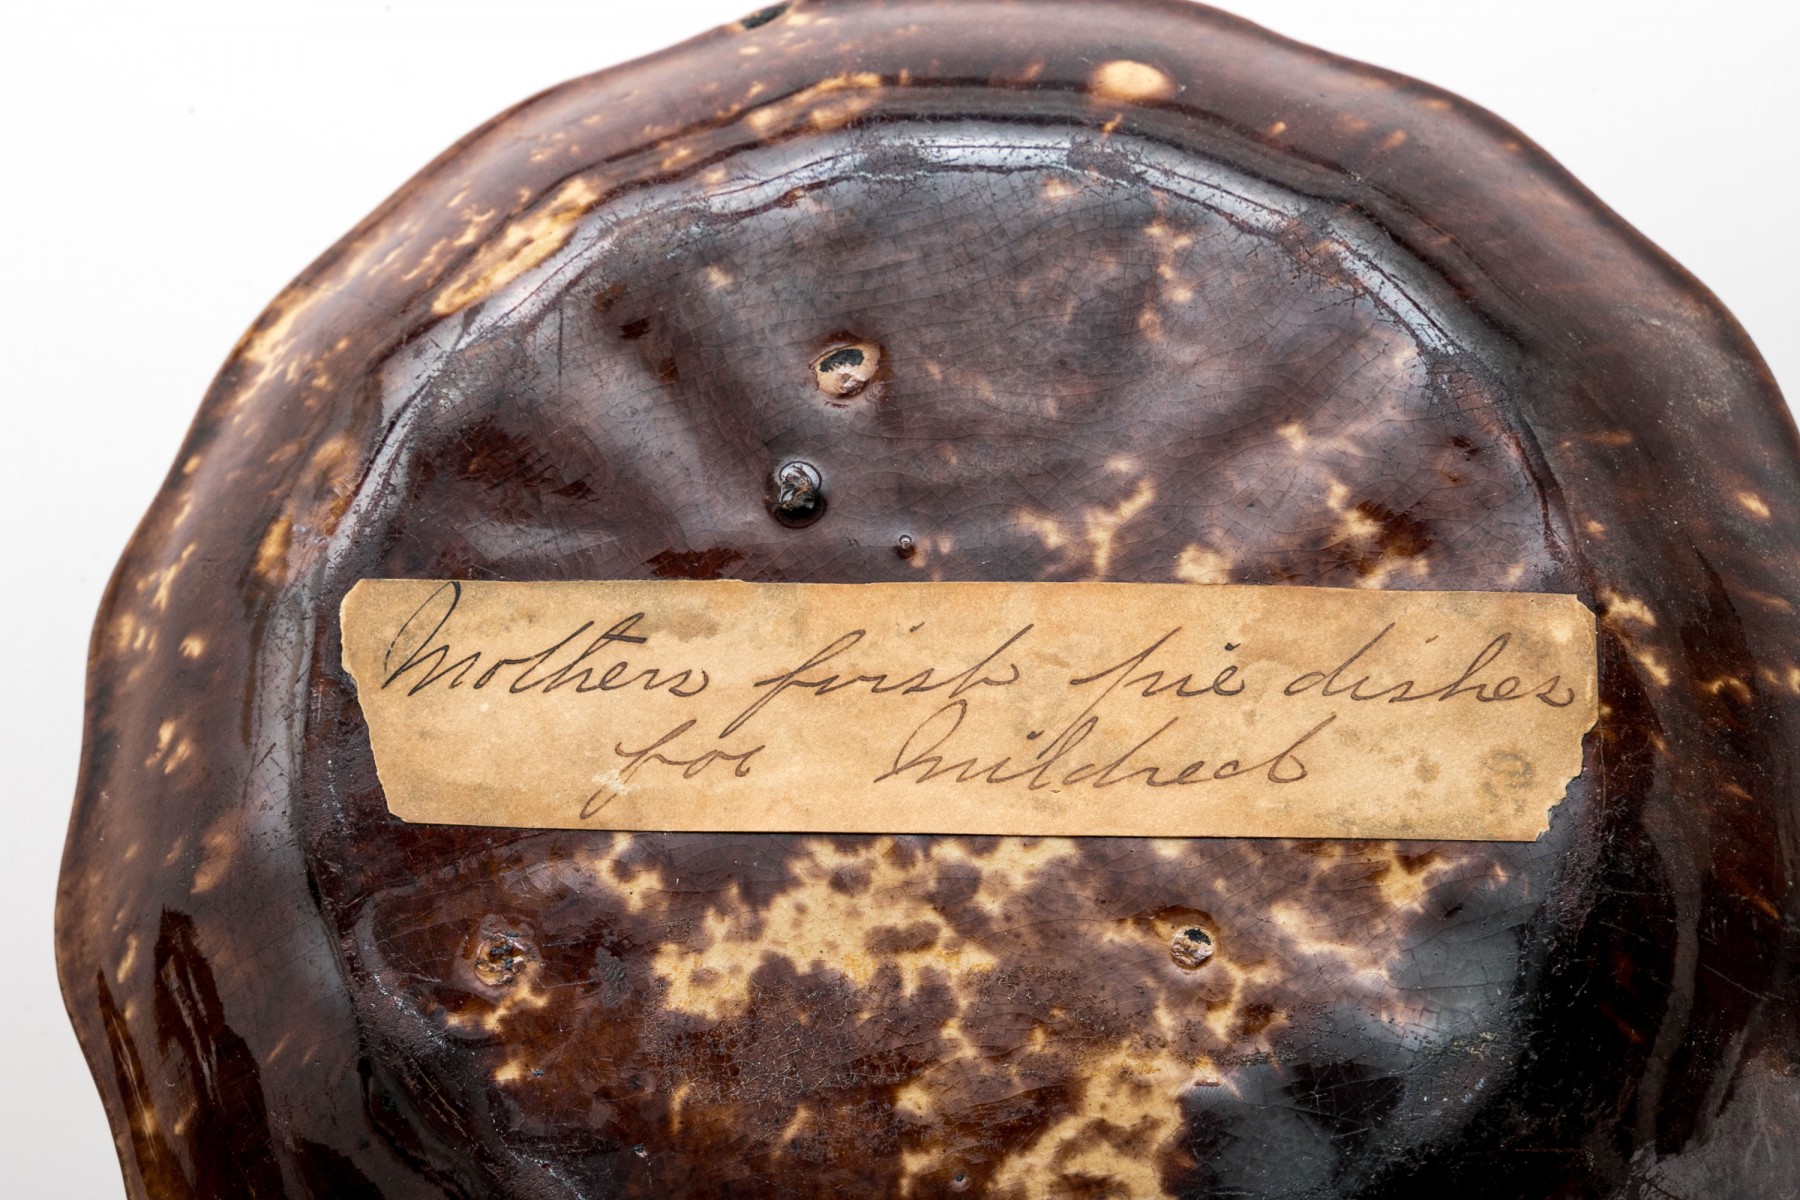 Mothers first pie dishes
for Mildred